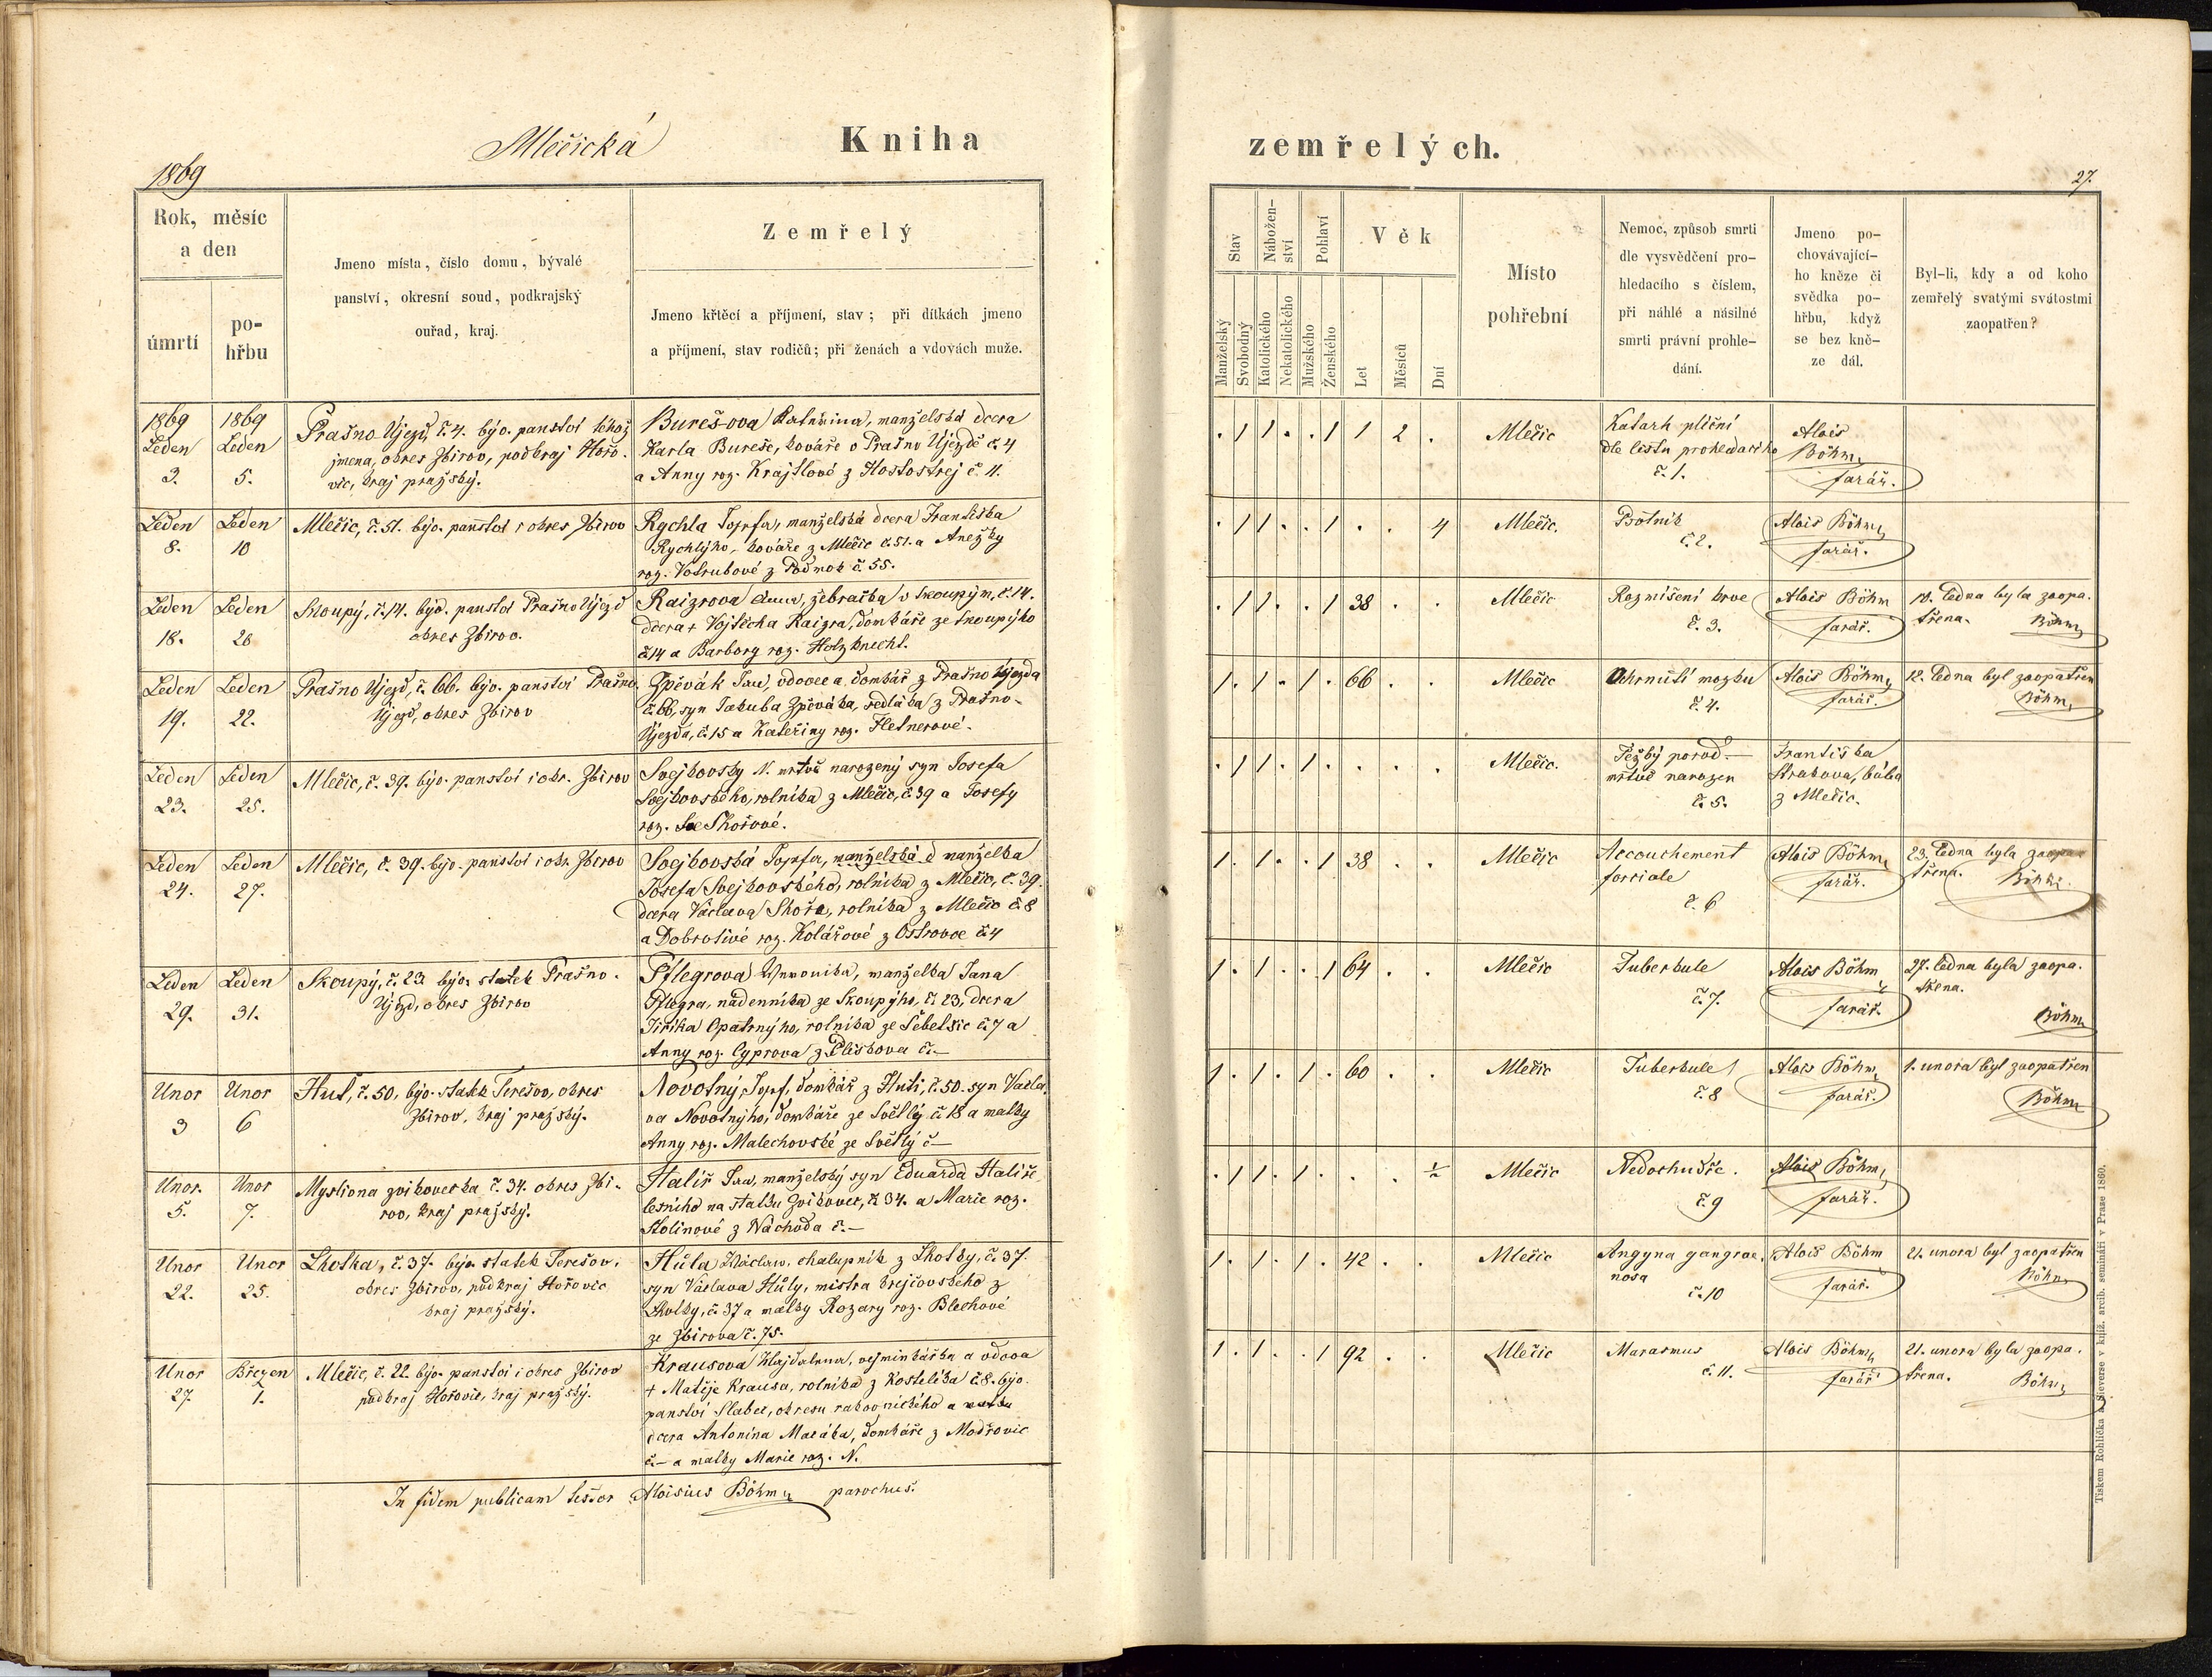 Mlečická
Kniha
1869
Rok, měsíc
a den
úmrtí
po-
hřbu
Jmeno místa, číslo domu, bývalé
panství, okresní soud, podkrajský
ouřad, kraj.
Zemřelý
Jmeno křtěcí a příjmení, stav; při dítkách jmeno
a příjmení, stav rodičů; při ženách a vdovách muže.
1869
Leden
3.
1869
Leden
5.
Prašno Újezd, č. 4. býv. panství téhož
jmena, okres Zbirov, podkraj Hořo-
vic, kraj pražský.
Bureš-ova Kateřina, manželská dcera
Karla Bureše, kováře v Prašno Újezdě č. 4
a Anny roz. Krajtlové z Hostostrej č. 11.
Leden
8.
Leden
10
Mlečic, č. 51. býv. panství i okres Zbirov
Rychla Josefa, manželská dcera Františka
Rychlýho, kováře z Mlečic č. 51. a Anežky
roz. Votrubové z Podmok č. 55.
Leden
18.
Leden
20
Skoupý, č. 14. býv. panství Prašno Újezd
okres Zbirov.
Raizrova Anna, žebračka v Skoupým, č. 14.
dcera + Vojtěcha Raizra, domkáře ze Skoupýho
č. 14 a Barbory roz. Holzknecht.
Leden
19.
Leden
22.
Prašno Újezd, č. 66. býv. panství Prašno
Újezd, okres Zbirov
Zpěvák Jan, vdovec a domkář z Prašno Újezda
č. 66, syn Jakuba Zpěváka, sedláka z Prašno-
Újezda, č. 15 a Kateřiny roz. Fletnerové.
Leden
23.
Leden
25.
Mlečic, č. 39. býv. panství i okr. Zbirov
Svejkovsky N. mrtvě narozený syn Josefa
Svejkovského, rolníka z Mlečic, č. 39 a Josefy
roz. Skořové.
Leden
24.
Leden
27.
Mlečic, č. 39. býv. panství i okr. Zbirov
Svejkovská Josefa, manželská d manželka
Josefa Svejkovského, rolníka z Mlečic, č. 39.
dcera Václava Skořa, rolníka z Mlečic č. 8
a Dobrotivé roz. Kolářové z Ostrovce č. 4
Leden
29.
Leden
31.
Skoupý, č. 23 býv. statek Prašno-
Újezd, okres Zbirov
Pflegrova Veronika, manželka Jana
Pflegra, nadenníka ze Skoupýho, č. 23, dcera
Jiříka Opatrnýho, rolníka ze Šebelsic č. 7 a
Anny roz. Cyprova z Pliskova č. —
Unor
3
Unor
6
Huť, č. 50, býv. statek Terešov, okres
Zbirov, kraj pražský.
Novotný Josef, domkář z Huti, č. 50. syn Václa-
va Novotnýho, domkáře ze Světlý č. 18 a matky
Anny roz. Malechovské ze Světlý č —
Unor.
5.
Unor
7.
Myslivna zvikovecka č. 34. okres Zbi-
rov, kraj pražský.
Halíř Jan, manželský syn Eduarda Halíře
lesního na statku Zvikovec, č. 34. a Marie roz.
Stolinové z Náchoda č. —
Unor
22.
Unor
25.
Lhotka, č. 37. býv. statek Terešov,
okres Zbirov, podkraj Hořovic
kraj pražský.
Hůla Václav, chalupník z Lhotky, č. 37.
syn Václava Hůly, mistra krejčovského z
Lhotky, č. 37 a matky Rozary roz. Blechové
ze Zbirova č. 75.
Unor
27.
Březen
1.
Mlečic, č. 22. býv. panství i okres Zbirov
podkraj Hořovic, kraj pražský.
Krausova Majdalena, vejminkářka a vdova
+ Matěje Krausa, rolníka z Kostelíka č. 8. býv.
panství Slabec, okresu rakovnického a
dcera Antonína Macáka, domkáře z Modřovic
č. — a matky Marie roz. N.
In fidem publicam testor Aloisius Böhm parochus.
zemřelých.
27.
Stav
Nábožen-
ství
Pohlaví
Věk
Místo
pohřební
Nemoc, způsob smrti
dle vysvědčení pro-
hledacího s číslem,
při náhlé a násilné
smrti právní prohle-
dání.
Jmeno po-
chovávající-
ho kněze či
svědka po-
hřbu, když
se bez kně-
ze dál.
Byl-li, kdy a od koho
zemřelý svatými svátostmi
zaopatřen?
Manželský
Svobodný
Katolického
Nekatolického
Mužského
Ženského
Let
Měsíců
Dní
. 1 1 . . 1 1 2 .
Mlečic
Katarh plicní
dle listu prohledacího
č. 1.
Alois
Böhm
farář.
. 1 1 . . 1 . . 4
Mlečic.
Psotník
č. 2.
Alois Böhm
farář.
. 1 1 . . 1 38 . .
Mlečic
Rozmíšení krve
č. 3.
Alois Böhm
farář.
10. ledna byla zaopa-
třena. Böhm
1 . 1 . 1 . 66 . .
Mlečic
Ochrnutí mozku
č. 4.
Alois Böhm
farář.
12. ledna byl zaopatřen
Böhm
. 1 1 . 1 . . . .
Mlečic.
Težký porod —
mrtvě narozen
č. 5.
Františka
Strakova, bába
z Mlečic.
1 . 1 . . 1 38 . .
Mlečic
Accouchement
forciale
č. 6
Alois Böhm
farář.
23. ledna byla zaopa-
třena. Böhm
1 . 1 . . 1 64 . .
Mlečic
Tuberkule
č. 7.
Alois Böhm
farář.
27. ledna byla zaopa-
třena.
Böhm
1 . 1 . 1 . 60 . .
Mlečic
Tuberkule
č. 8
Alois Böhm
farář.
1. unora byl zaopatřen
Böhm
. 1 1 . 1 . . . ½
Mlečic
Nedochudře.
č. 9
Alois Böhm
farář.
1 . 1 . 1 . 42 . .
Mlečic
Angyna gangrae-
nosa
č. 10
Alois Böhm
farář.
21. unora byl zaopatřen
Böhm
1 . 1 . . 1 92 . .
Mlečic
Marasmus
č. 11.
Alois Böhm
farář
21. unora byla zaopa-
třena. Böhm
Tiskem Rohlíčka a Sieverse v kníž. arcib. semináři v Praze 1860.